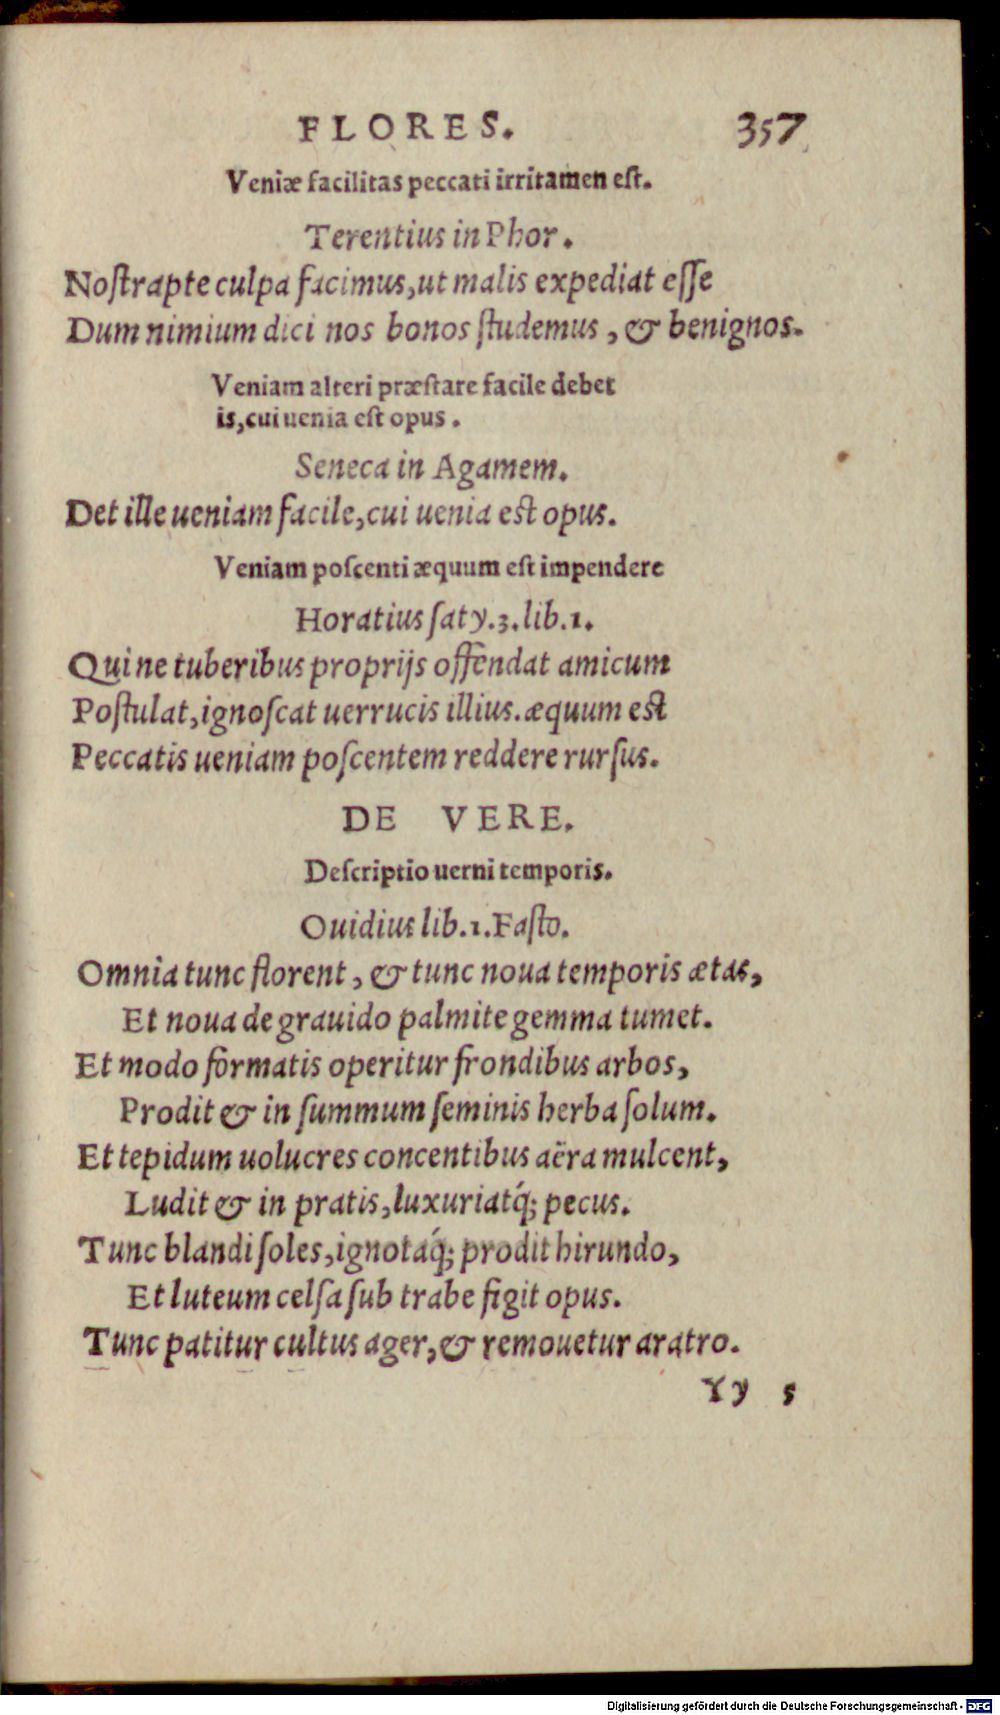 FLORES. 357
Veniæ facilitas peccati irritamen est.
Terentius in Phor.
Nostrapte culpa facimus, ut malis expediat esse
Dum nimium dici nos bonos studemus, & benignos.
Veniam alteri præstare facile debet
is, cui uenia est opus.
Seneca in Agamem.
Det ille ueniam facile, cui uenia est opus.
Veniam poscenti æquum est impendere
Horatius saty. 3. lib. 1.
Qui ne tuberibus proprijs offendat amicum
Postulat, ignoscat uerrucis illius. æquum est
Peccatis ueniam poscentem reddere rursus.
DE VERE.
Descriptio uerni temporis.
Ouidius lib. 1. Fasto.
Omnia tunc florent, & tunc noua temporis ætas,
Et noua de grauido palmite gemma tumet.
Et modo formatis operitur frondibus arbos,
Prodit & in summum seminis herba solum.
Et tepidum uolucres concentibus aëra mulcent,
Ludit & in pratis, luxuriatq́; pecus.
Tunc blandi soles, ignotaq́; prodit hirundo,
Et luteum celsa sub trabe figit opus.
Tunc patitur cultus ager, & remouetur aratro.
Yy 5
Digitalisierung gefördert durch die Deutsche Forschungsgemeinschaft - DFG